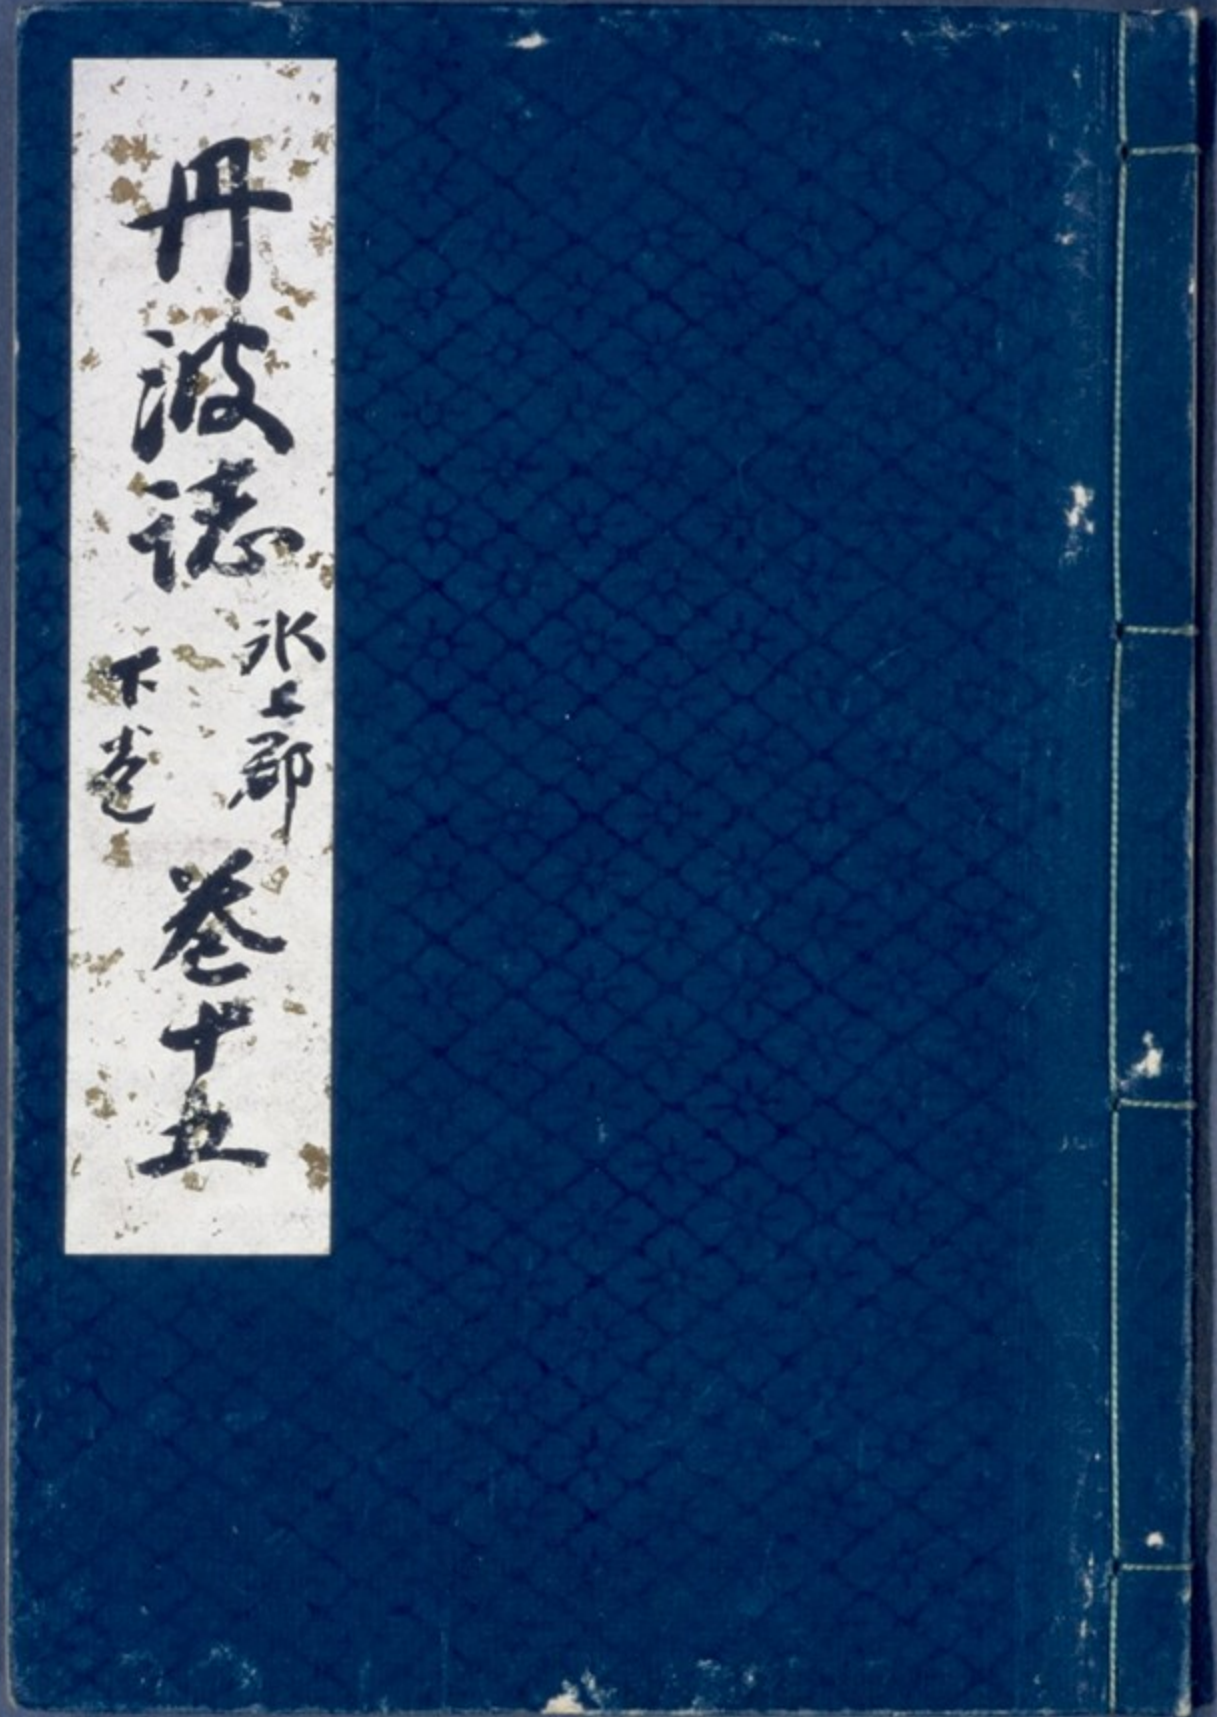 丹波誌
氷上郡
下巻
巻十五